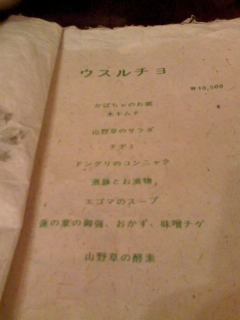 ウスルチョ
₩18,500
かぼちゃのお粥
水キムチ
山野草のサラダ
チヂミ
ドングリのコンニャク
煮豚とお漬物
エゴマのスープ
蓮の葉の御強、おかず、味噌チゲ
山野草の酵素